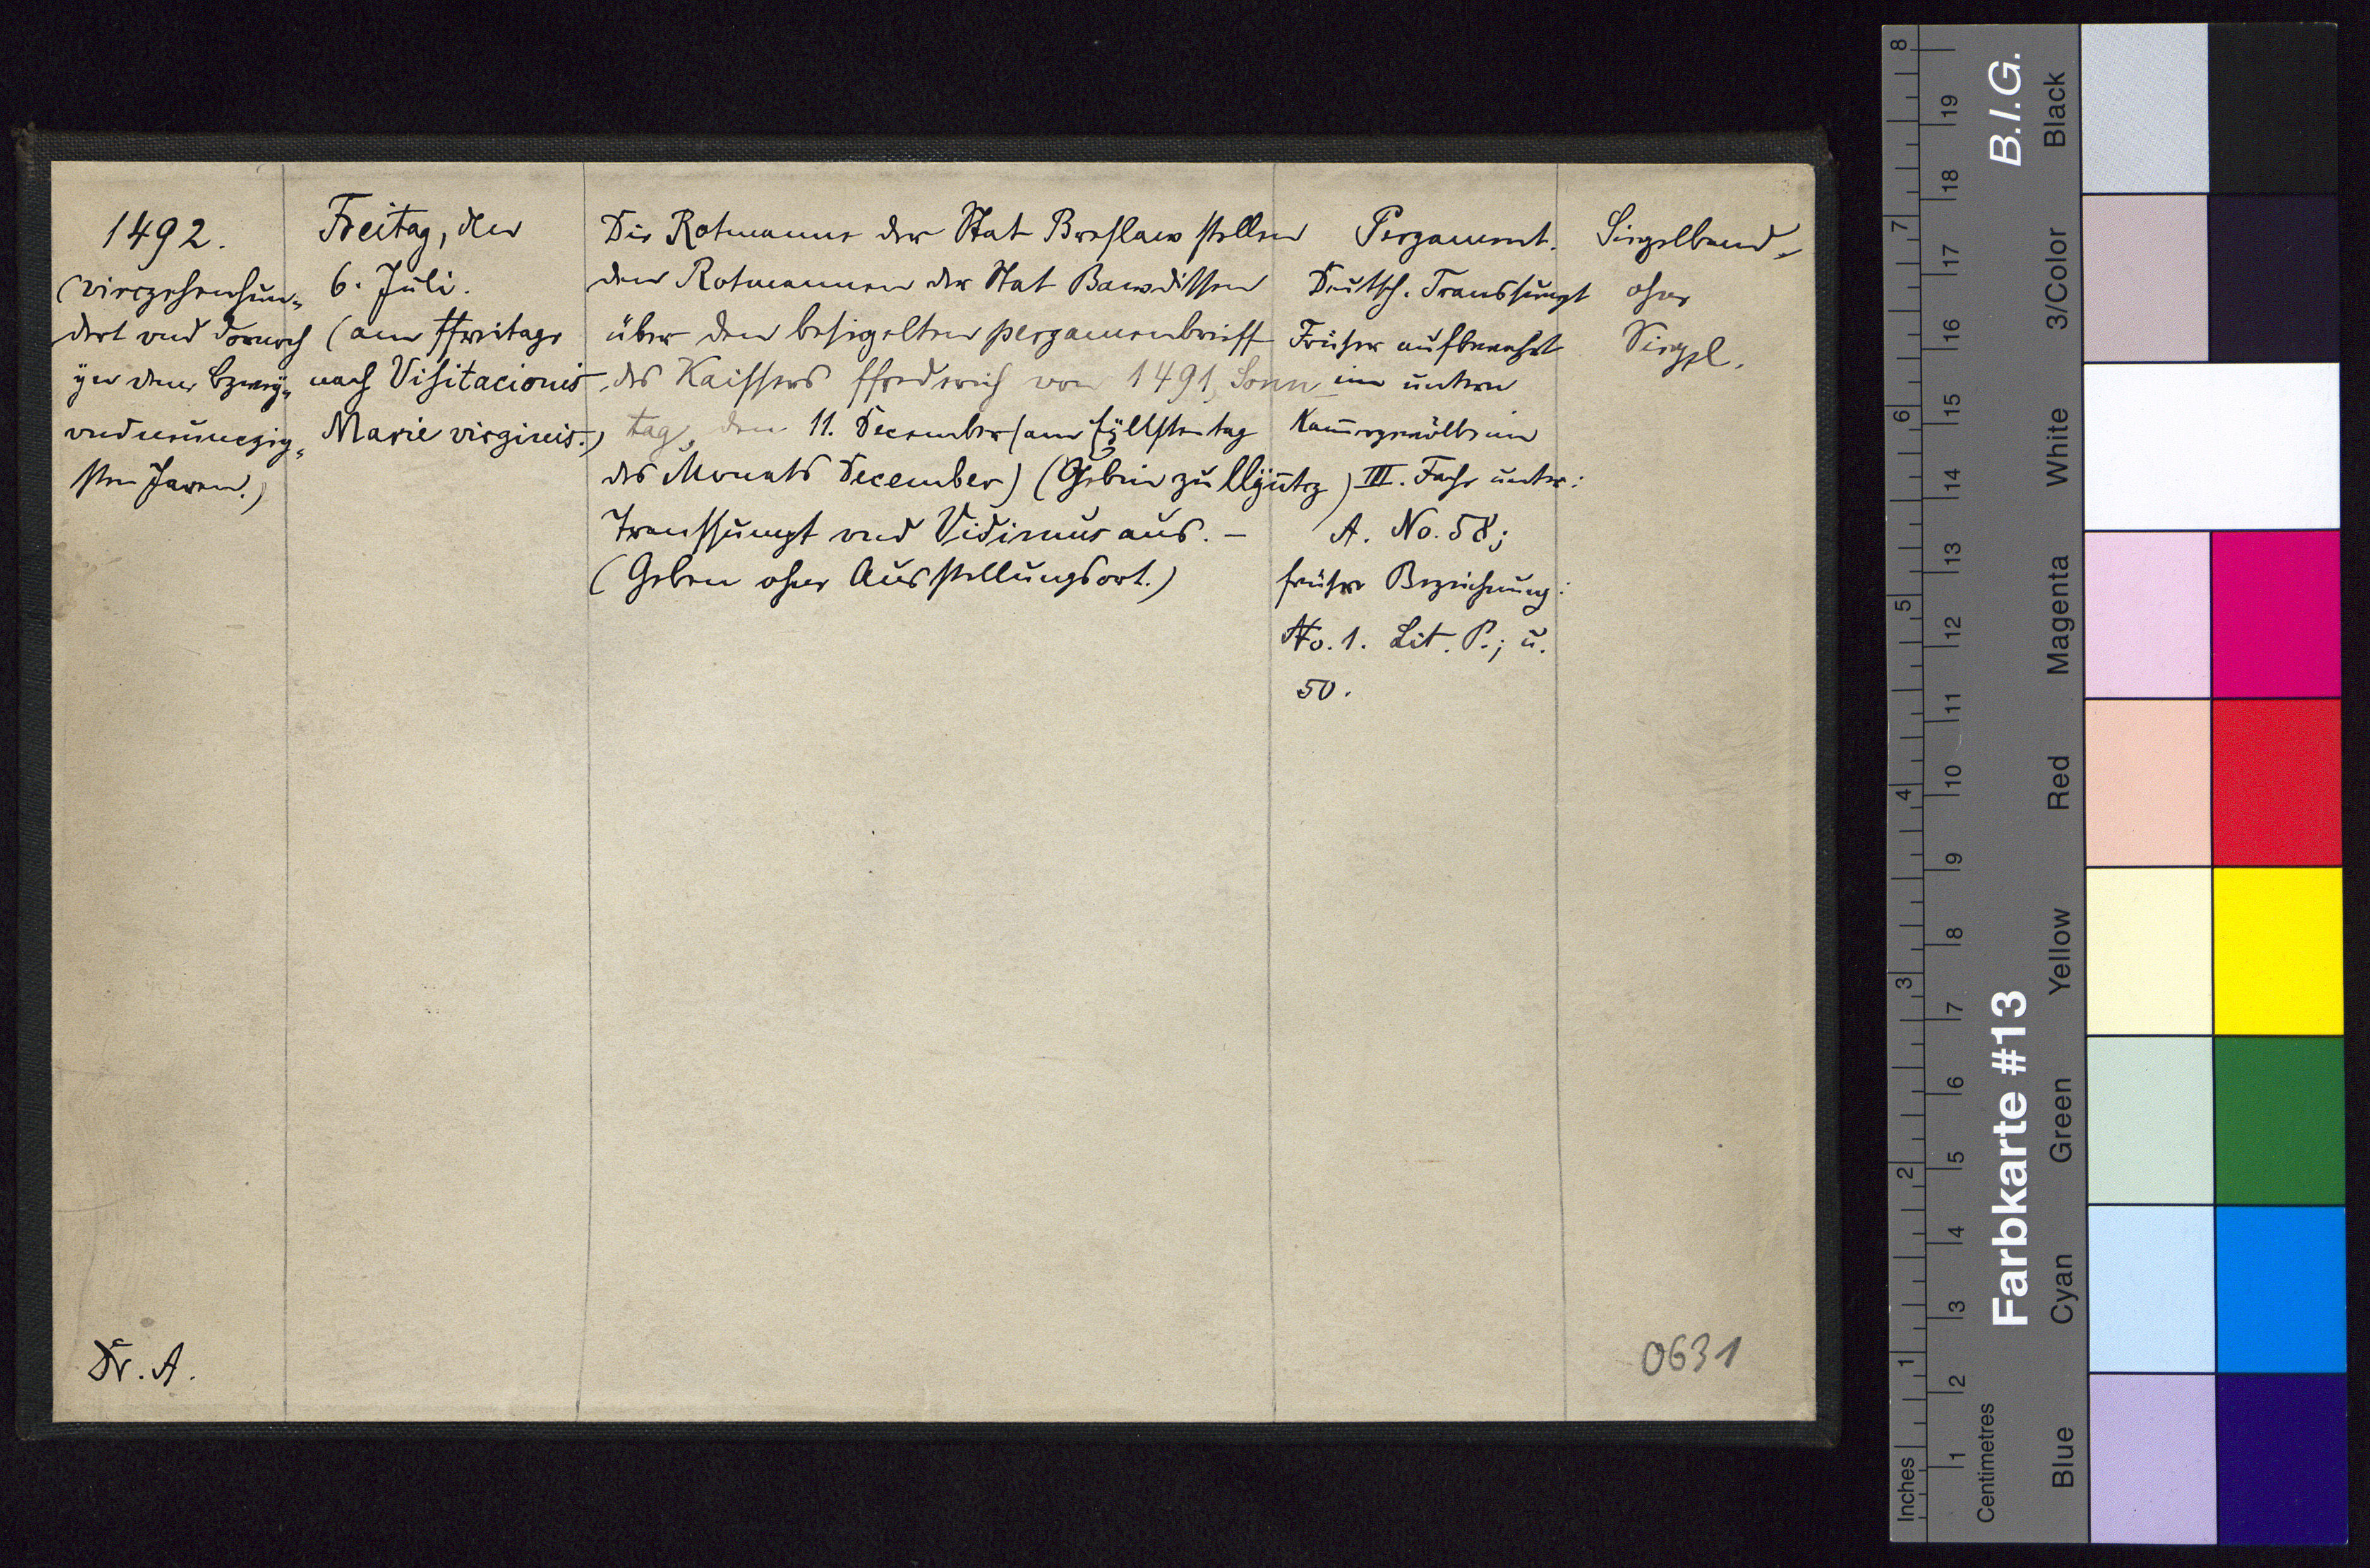 1492.
(vierzehenhun-
dert vnd dornoch
ÿn dem Czweÿ-
vndneunczig-
sten Jaren.)
Freitag, den
6. Juli.
(am ffreitage
nach Visitacionis
Marie virginis.)
Die Rotmanne der Stat Breslaw stellen
den Rotmannen der Stat Bawdissen
über den besigelten pergamenbrieff
des Kaissers ffrederich von 1491, Sonn-
tag, den 11. December (am Eylfften tag
des Monats December) (Geben zu Lÿntz)
Transsumpt vnd Vidimus aus. –
(Geben ohne Ausstellungsort.)
Pergament.
Deutsch. Transsumpt
Früher aufbewahrt
im untern
Kammergewölbe im
III. Fache unter:
A. No. 58;
frühere Bezeichnung:
No. 1. Lit. P.; u.
50.
Siegelband,
ohne
Siegel.
Dr. A.
0631
Inches
1 2 3 4 5 6 7 8
Centimetres
1 2 3 4 5 6 7 8 9 10 11 12 13 14 15 16 17 18 19
Farbkarte #13
B.I.G.
Blue
Cyan
Green
Yellow
Red
Magenta
White
3/Color
Black